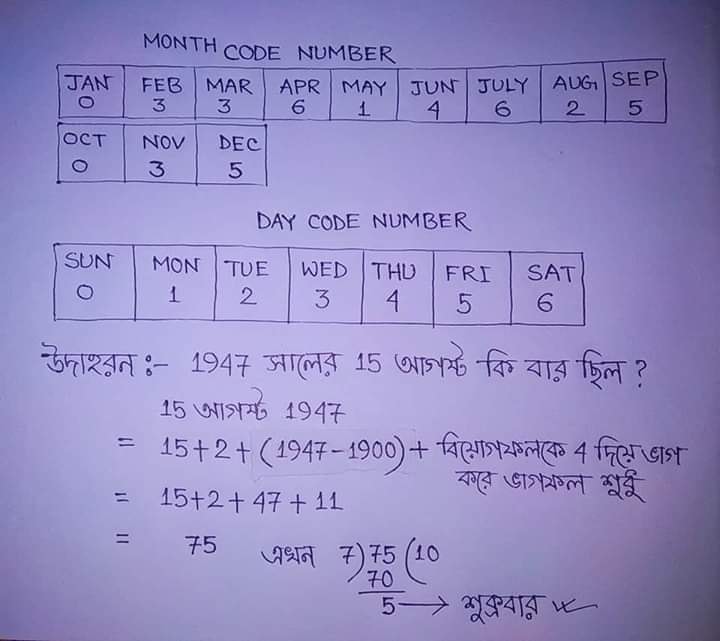 MONTH CODE NUMBER
JAN FEB MAR APR MAY JUN JULY AUG SEP
0 3 3 6 1 4 6 2 5
OCT NOV DEC
0 3 5
DAY CODE NUMBER
SUN MON TUE WED THU FRI SAT
0 1 2 3 4 5 6
উদাহরন :- 1947 সালের 15 আগষ্ট কি বার ছিল ?
15 আগষ্ট 1947
= 15+2+(1947-1900)+ বিয়োগফলকে 4 দিয়ে ভাগ
করে ভাগফল শুধু
= 15+2+47+11
= 75 এখন 7)75(10
70
5→ শুক্রবার